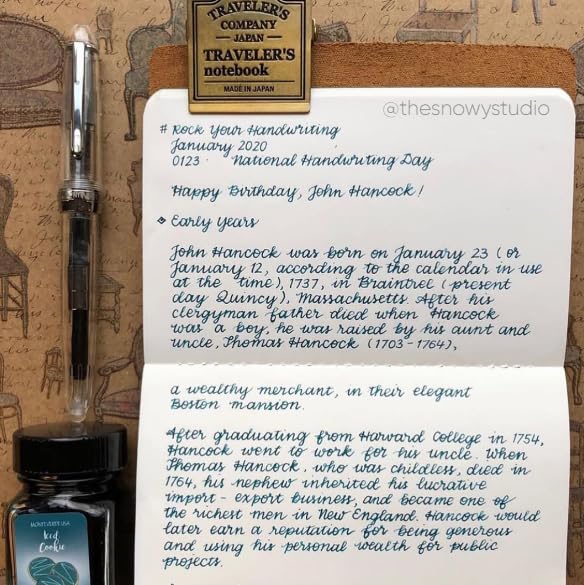 TRAVELER'S
COMPANY
JAPAN
TRAVELER'S
notebook
MADE IN JAPAN
@thesnowystudio
# Rock Your Handwriting
January 2020
0123 · National Handwriting Day
Happy Birthday, John Hancock!
Early Years
John Hancock was born on January 23 (or
January 12, according to the calendar in use
at the time), 1737, in Braintree (present
day Quincy), Massachusetts. After his
clergyman father died when Hancock
was a boy, he was raised by his aunt and
uncle, Thomas Hancock (1703-1764),
a wealthy merchant, in their elegant
Boston mansion.
After graduating from Harvard College in 1754,
Hancock went to work for his uncle. When
Thomas Hancock, who was childless, died in
1764, his nephew inherited his lucrative
import-export business, and became one of
the richest men in New England. Hancock would
later earn a reputation for being generous
and using his personal wealth for public
projects.
MONTEVERDE USA
Iced
Cookie